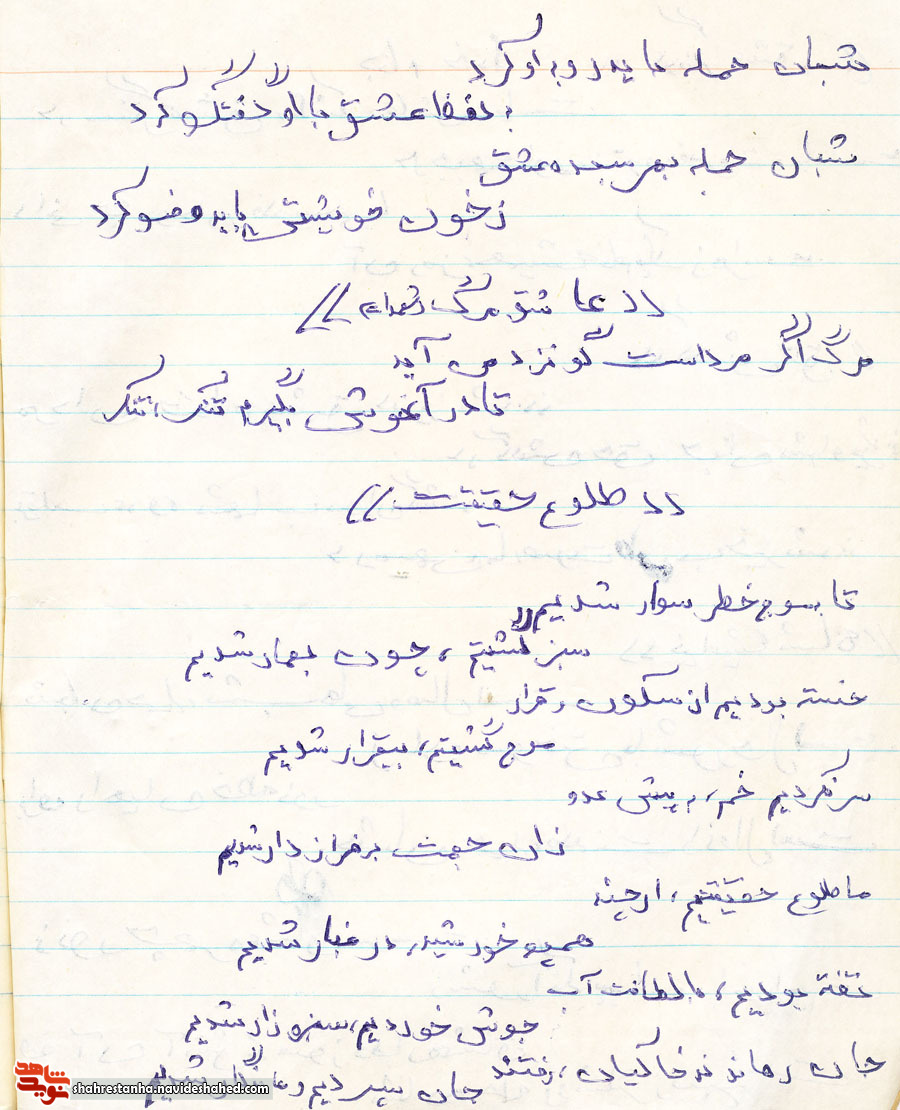 شبان حمله باید رو به او کرد
به لفظ عشق با او گفتگو کرد
شبان حمله بهر سجده عشق
ز خون خویشتن باید وضو کرد
«عاشق مرگ شهداء»
مرگ اگر مرد است گو نزد من آید
تا در آغوش بگیرم تنگ تنگ
«طلوع حقیقت»
تا بموج خطر سوار شدیم
سبز گشتیم، چون بهار شدیم
خسته بودیم از سکون و قرار
موج گشتیم، بیقرار شدیم
سر نکردیم خم، به پیش عدو
زان جهت بر فراز دار شدیم
ما طلوع حقیقتیم، ارچند
همچو خورشید، در غبار شدیم
تفته بودیم، با لطافت آب
جوش خوردیم، سبزه زار شدیم
جان رهاندند خاکیان، رفتند
جان سپردیم و شدیم
شاهد
نوید
shahrestanha.navideshahed.com